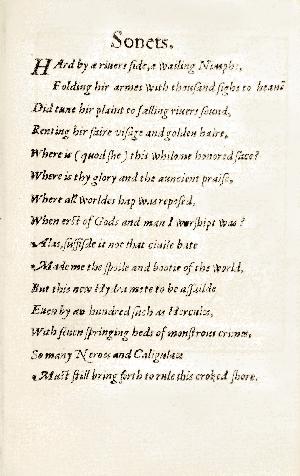 Sonets.
HArd by a riuers side, a wailing Nimphe,
Folding hir armes with thousand sighs to heauē
Did tune hir plaint to falling riuers sound,
Renting hir faire visage and golden haire,
Where is (quod she) this whilome honored face?
Where is thy glory and the auncient praise,
Where all worldes hap was reposed,
When erst of Gods and man I worshipt was?
Alas, suffisde it not that ciuile bate
Made me the spoile and bootie of the world,
But this new Hydra mete to be assailde
Euen by an hundred such as Hercules,
With seuen springing heds of monstrous crimes,
So many Neroes and Caligulaes
Must still bring forth to rule this croked shore.